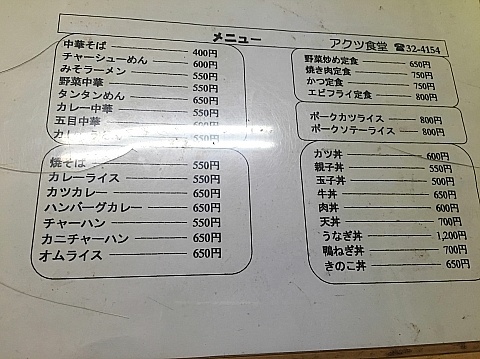 メニュー　アクツ食堂 ☎32-4154
中華そば 400円
チャーシューめん 600円
みそラーメン 550円
野菜中華 550円
タンタンめん 600円
カレー中華 550円
五目中華
焼そば 550円
カレーライス 550円
カツカレー 650円
ハンバーグカレー 650円
チャーハン 550円
カニチャーハン 650円
オムライス 650円
野菜炒め定食 650円
焼き肉定食 750円
かつ定食 750円
エビフライ定食 800円
ポークカツライス 800円
ポークソテーライス 800円
カツ丼 600円
親子丼 550円
玉子丼 500円
牛丼 650円
肉丼 600円
天丼 700円
うなぎ丼 1,200円
鴨ねぎ丼 700円
きのこ丼 650円